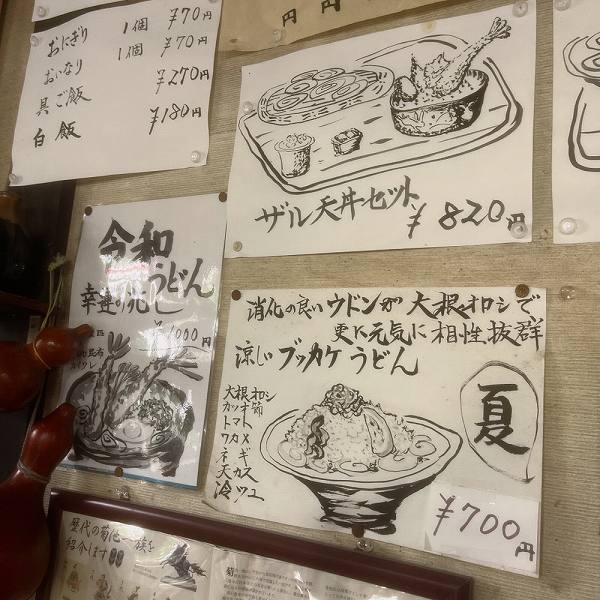 おにぎり 1個 ¥70円
おいなり 1個 ¥70円
具ご飯 ¥270円
白飯 ¥180円
円 円
ザル天丼セット ¥820円
令和
うどん
幸運の兆し
¥1000円
消化の良いウドンが大根オロシで
更に元気に相性抜群
涼しい ブッカケうどん
夏
大根オロシ
カツオ節
トマト
ワカメ
ネギ
天カス
冷ツユ
¥700円
歴代の菊池一族を
紹介します!!
菊